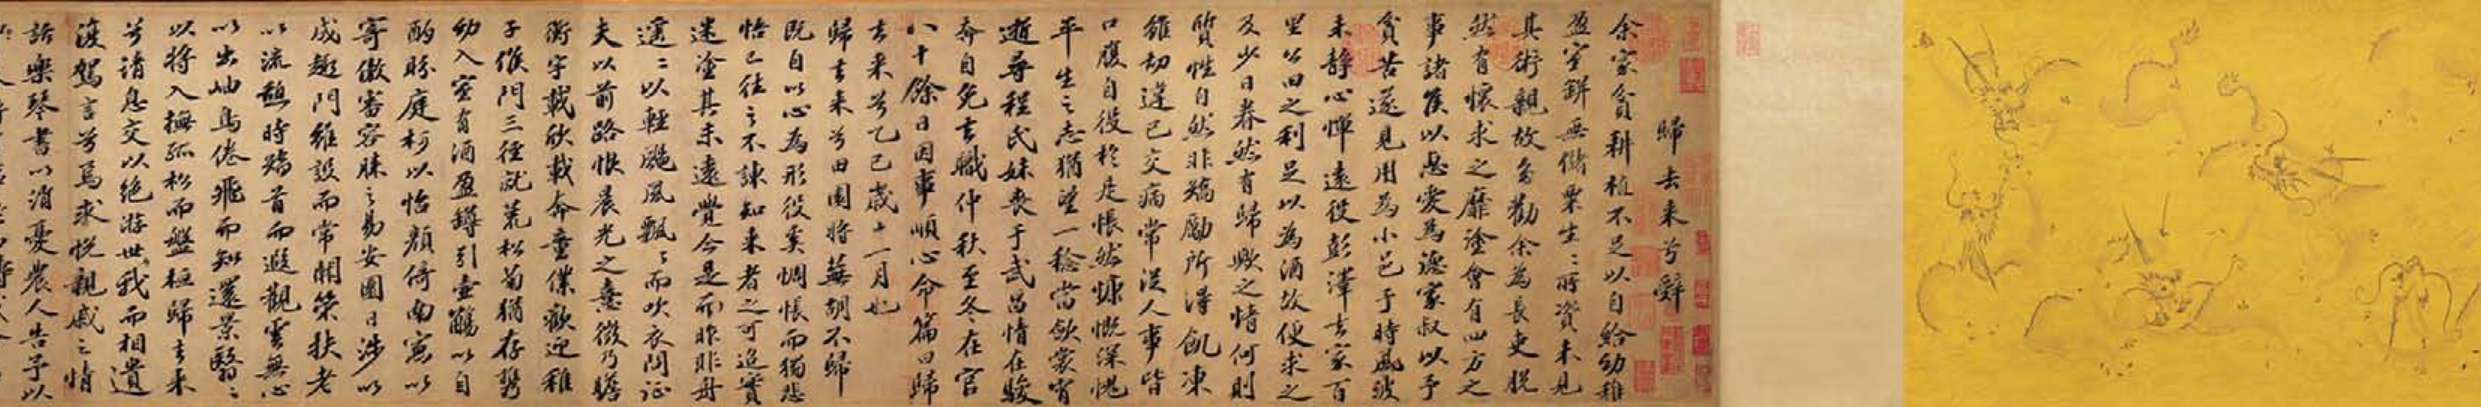 歸去来兮辭
余家貧耕植不足以自給幼稚
盈室缾無儲粟生〻所資未見
其術親故多勸余為長吏脫
然有懷求之靡塗會有四方之
事諸侯以惠愛為德家叔以予
貧苦遂見用為小邑于時風波
未靜心憚遠役彭澤去家百
里公田之利足以為酒故便求之
及少日眷然有歸歟之情何則
質性自然非矯勵所得飢凍
雖切違已交病常從人事皆
口腹自役於是悵然慷慨深愧
平生之志猶望一稔當斂裳宵
逝尋程氏妹喪于武昌情在駿
奔自免去職仲秋至冬在官
八十餘日因事順心命篇曰歸
去来兮乙巳歲十一月也
歸去来兮田園將蕪胡不歸
既自以心為形役奚惆悵而獨悲
悟已往之不諫知来者之可追實
迷塗其未遠覺今是而昨非非舟
遥〻以輕颺風飄〻而吹衣問征
夫以前路恨晨光之熹微乃瞻
衡宇載欣載奔童僕歡迎稚
子候門三徑就荒松菊猶存携
幼入室有酒盈罇引壺觴以自
酌眄庭柯以怡顏倚南窓以
寄傲審容膝之易安園日涉以
成趣門雖設而常關策扶老
以流憩時矯首而遐觀雲無心
以出岫鳥倦飛而知還景翳〻
以將入撫孤松而盤桓歸去来
兮請息交以絕游世我而相遺
復駕言兮焉求悅親戚之情
話樂琴書以消憂農人告予以